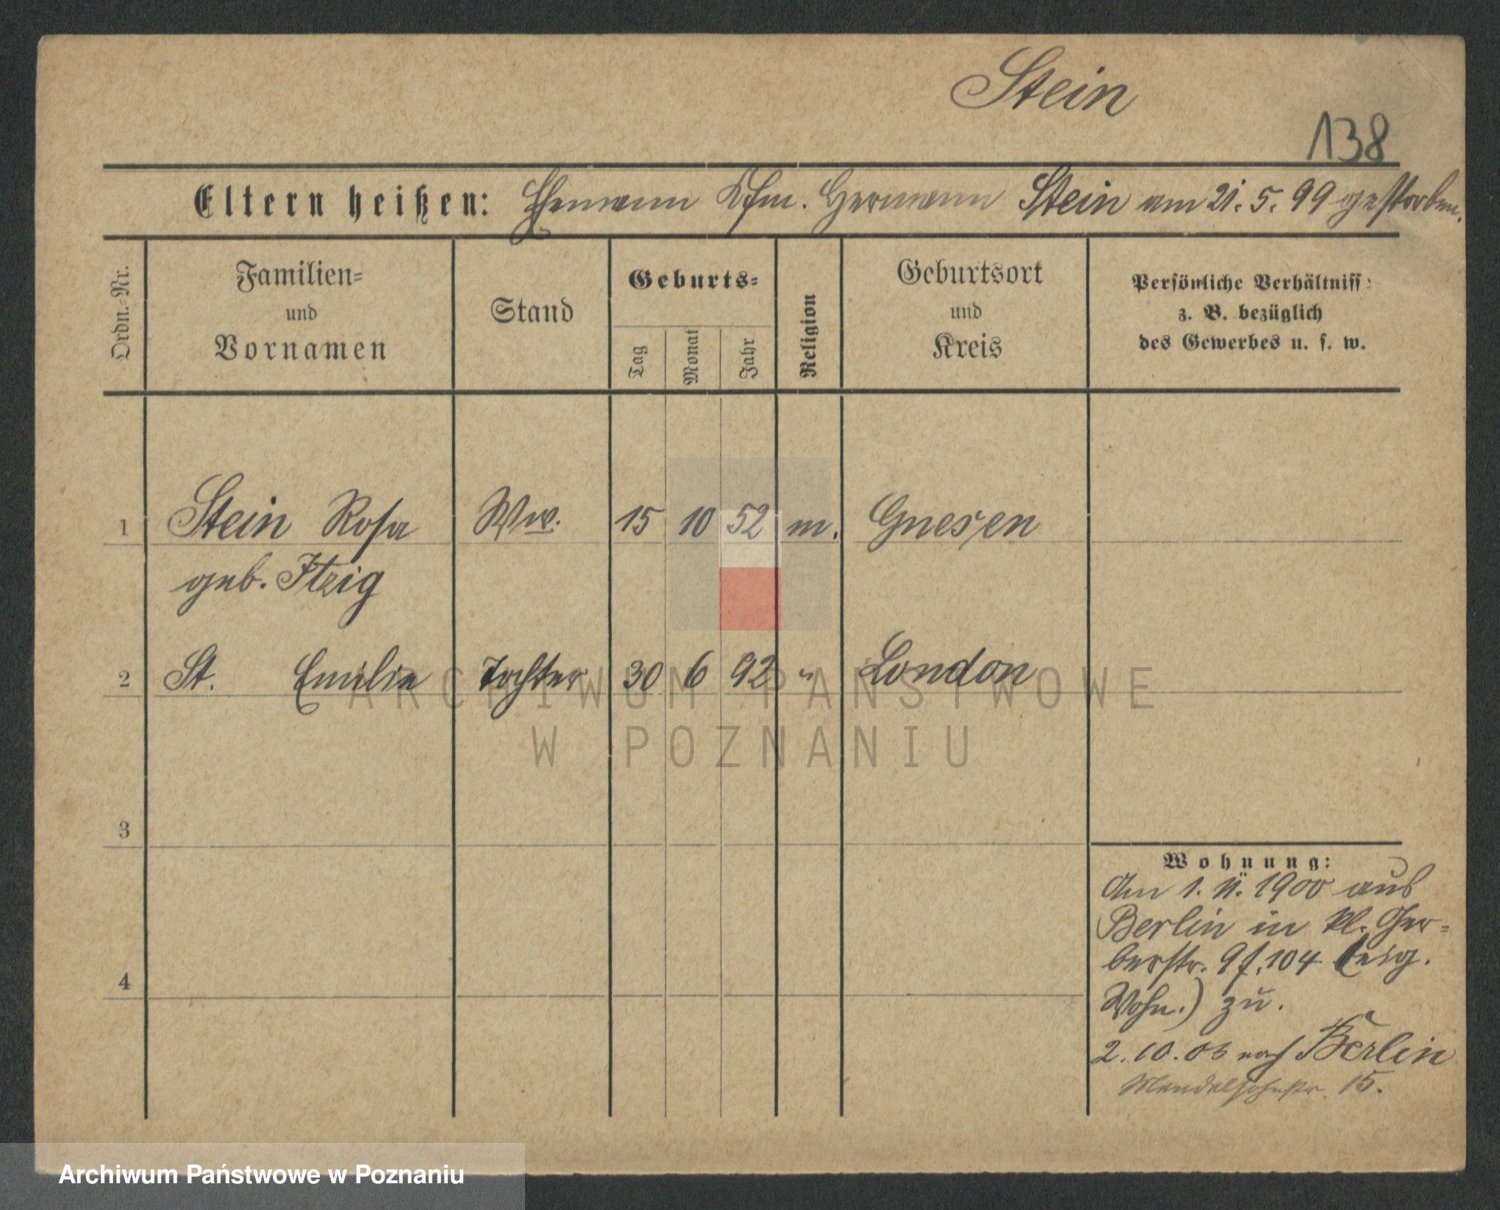 Stein
138
Eltern heißen: Ehemann Kfm. Hermann Stein am 21.5.99 gestorben.
Ordn.-Nr.
Familien-
und
Vornamen
Stand
Geburts-
Tag
Monat
Jahr
Religion
Geburtsort
und
Kreis
Persönliche Verhältniss:
z. B. bezüglich
des Gewerbes u. s. w.
1 Stein Rosa Ww. 15 10 52 m. Gnesen
geb. Itzig
2 St. Emilie Tochter 30 6 92 " London
ARCHIWUM PAŃSTWOWE
W POZNANIU
3
Wohnung:
Am 1. 11. 1900 aus
Berlin in kl. Ger-
berstr. 9 f. 104 (eig.
4
Wohn.) zu.
2.10.06 nach Berlin
Mendelsohnstr. 15.
Archiwum Państwowe w Poznaniu